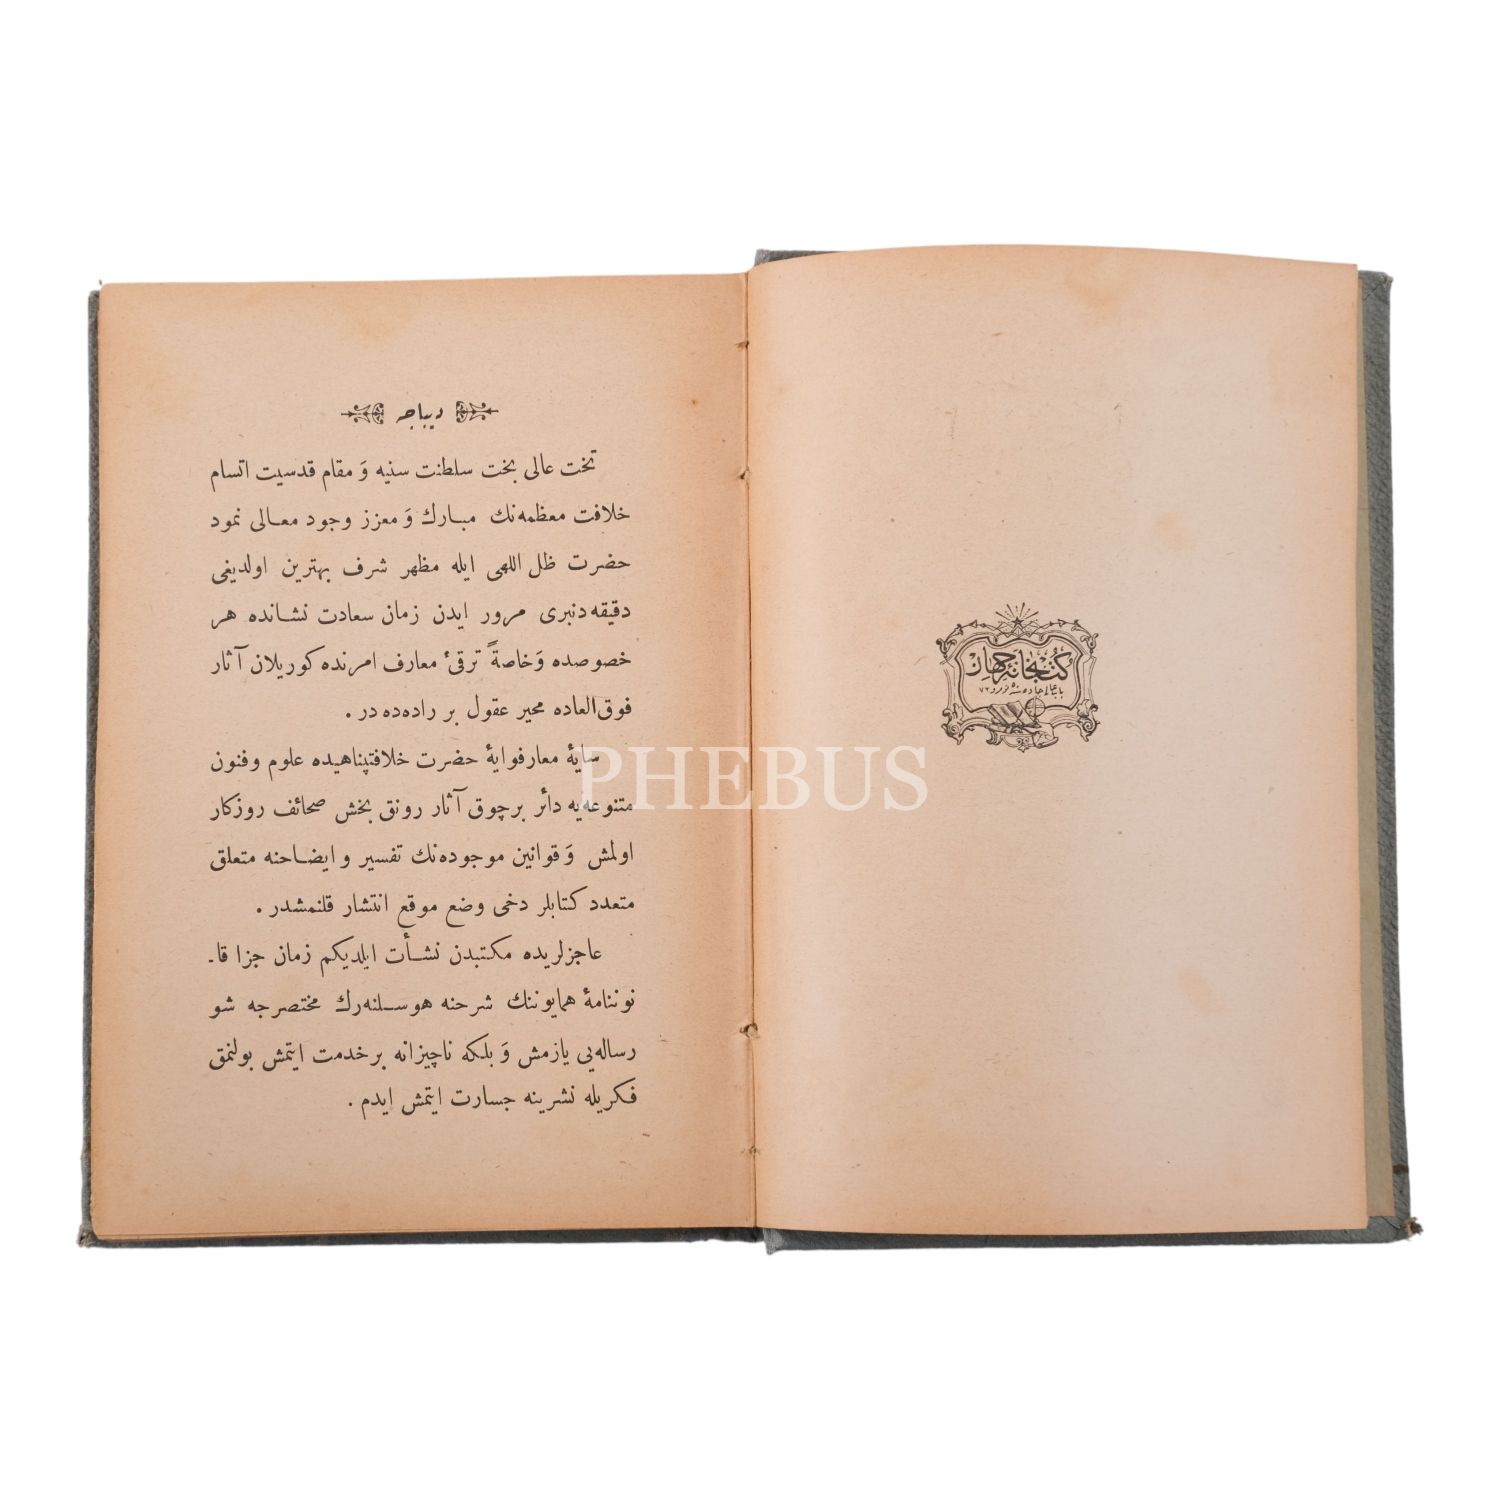 كتبخانهٔ جهان
باب عالی جاده سنده نومرو ٧٢
دیباجه
تخت عالی بخت سلطنت سنیه وَ مقام قدسیت اتسام
خلافت معظمه‌نك مبارك وَ معزز وجود معالی نمود
حضرت ظل اللهی ایله مظهر شرف بهترین اولدیغی
دقیقه‌دنبری مرور ایدن زمان سعادت نشانده هر
خصوصده وَ خاصةً ترقیٔ معارف امرنده كوریلان آثار
فوق‌العاده محیر عقول بر راده‌ده در .
سایهٔ معارفوایهٔ حضرت خلافتپناهیده علوم وفنون
متنوعه‌یه دائر برچوق آثار رونق بخش صحائف روزكار
اولمش وَ قوانین موجوده‌نك تفسیر وایضاحنه متعلق
متعدد كتابلر دخی وضع موقع انتشار قلنمشدر .
عاجزلریده مكتبدن نشأت ایلدیكم زمان جزا قا-
نوننامهٔ همایوننك شرحنه هوسلنه‌رك مختصرجه شو
رساله‌یی یازمش وَ بلكه ناچیزانه برخدمت ایتمش بولنمق
فكریله نشرینه جسارت ایتمش ایدم .
PHEBUS